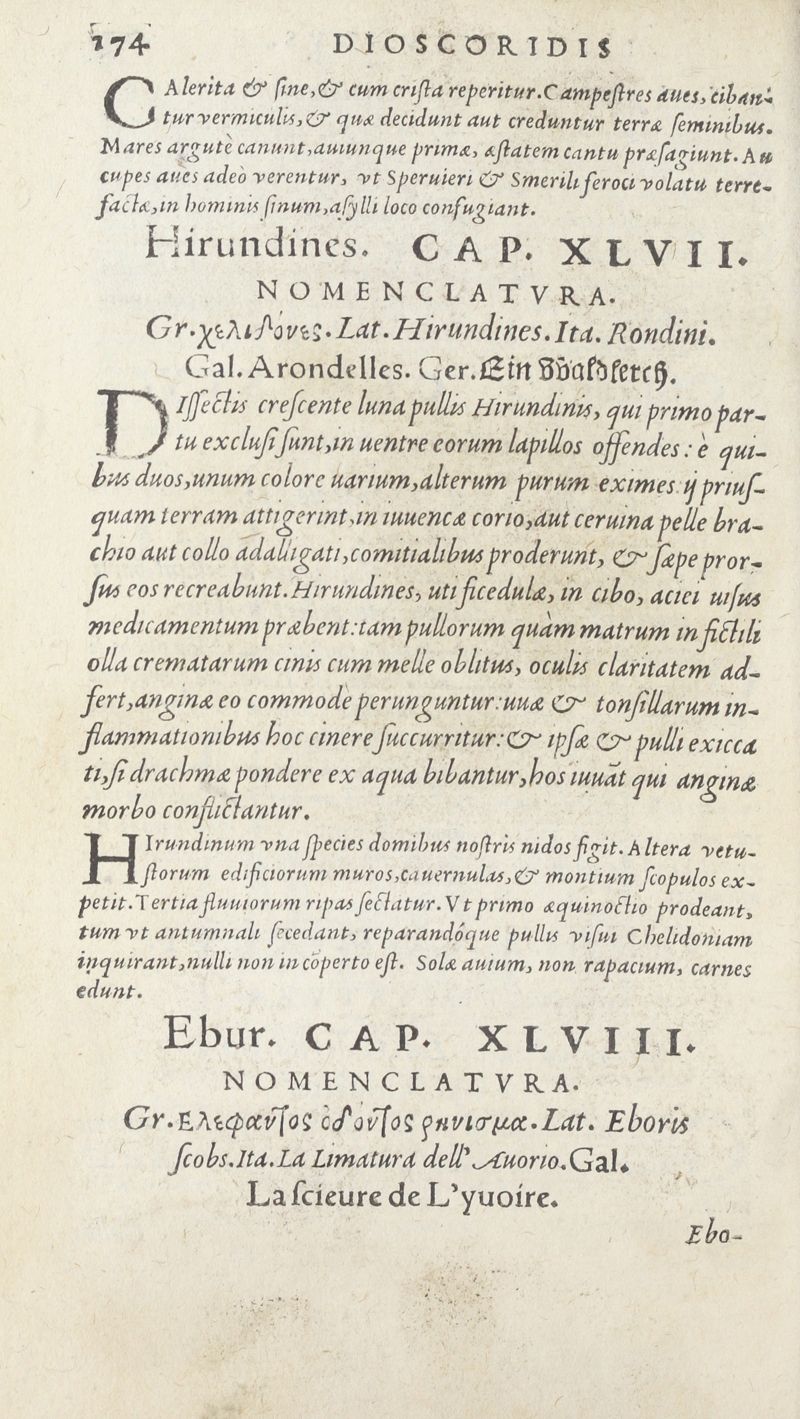 174 DIOSCORIDIS
CAlerita & ſine,& cum criſta reperitur.Campeſtres aues, ciban-
tur vermiculis,& quæ decidunt aut creduntur terræ ſeminibus.
Mares argutè canunt,auiunque primæ, æſtatem cantu præſagiunt. Au
cupes aues adeò verentur, vt Speruieri & Smerili feroci volatu terre-
factæ,in hominis ſinum,aſylli loco confugiant.
Hirundines. CAP. XLVII.
NOMENCLATVRA.
Gr.χελιδόνες.Lat.Hirundines.Ita. Rondini.
Gal. Arondelles. Ger.Ein
DIſſectis creſcente luna pullis Hirundinis, qui primo par-
tu excluſi ſunt,in uentre eorum lapillos offendes : è qui-
bus duos,unum colore uarium,alterum purum eximes ij priuſ-
quam terram attigerint,in iuuencæ corio,aut ceruina pelle bra-
chio aut collo adalligati,comitialibus proderunt, & ſæpe pror-
ſus eos recreabunt.Hirundines, uti ficedulæ, in cibo, aciei uiſus
medicamentum præbent:tam pullorum quàm matrum in fictili
olla crematarum cinis cum melle oblitus, oculis claritatem ad-
fert,anginæ eo commodè perunguntur:uuæ & tonſillarum in-
flammationibus hoc cinere ſuccurritur:& ipſæ & pulli exicca
ti,ſi drachmæ pondere ex aqua bibantur,hos iuuāt qui anginæ
morbo conflictantur.
HIrundinum vna ſpecies domibus noſtris nidos figit. Altera vetu-
ſtorum edificiorum muros,cauernulas,& montium ſcopulos ex-
petit.Tertia fluuiorum ripas ſectatur.Vt primo æquinoctio prodeant,
tum vt antumnali ſecedant, reparandóque pullis viſui Chelidoniam
inquirant,nulli non in cōperto eſt. Solæ auium, non rapacium, carnes
edunt.
Ebur. CAP. XLVIII.
NOMENCLATVRA.
Gr.Ελεφαντος οδοντος ρηνισμα.Lat. Eboris
ſcobs.Ita.La Limatura dell' Auorio.Gal.
La ſcieure de L'yuoire.
Ebo-